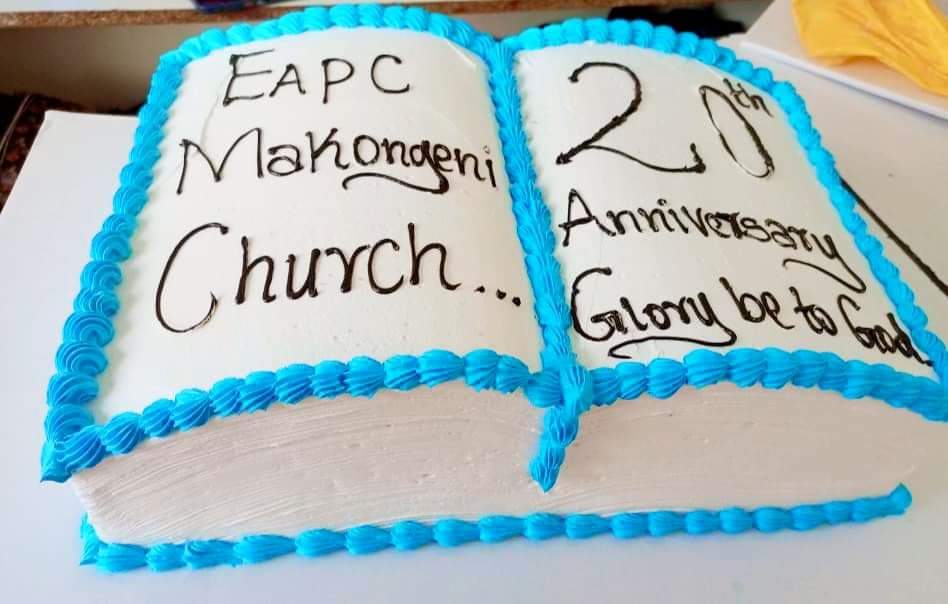 EAPC
Makongeni
Church...
20th
Anniversary
Glory be to God